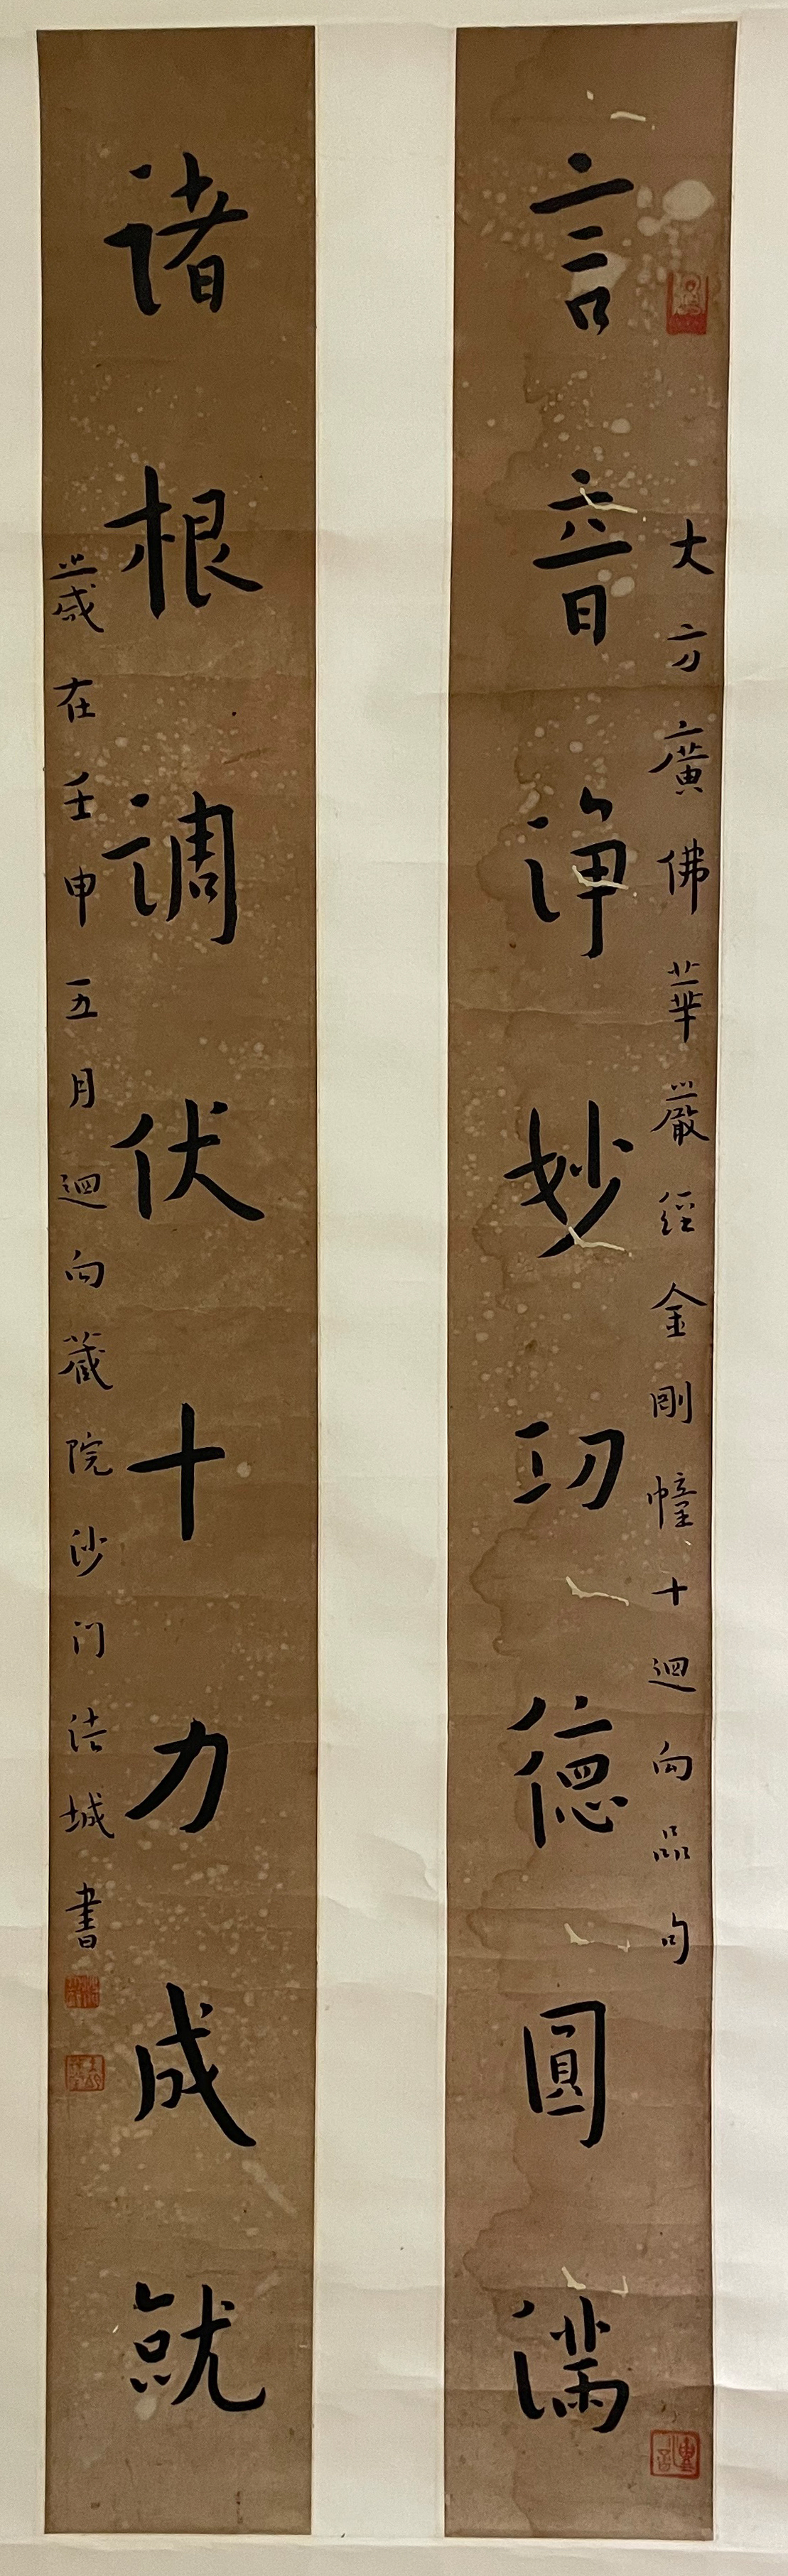 大方廣佛華嚴經金剛幢十迴向品句
言音淨妙功德圓滿
諸根調伏十力成就
歲在壬申五月迴向藏院沙門法城書